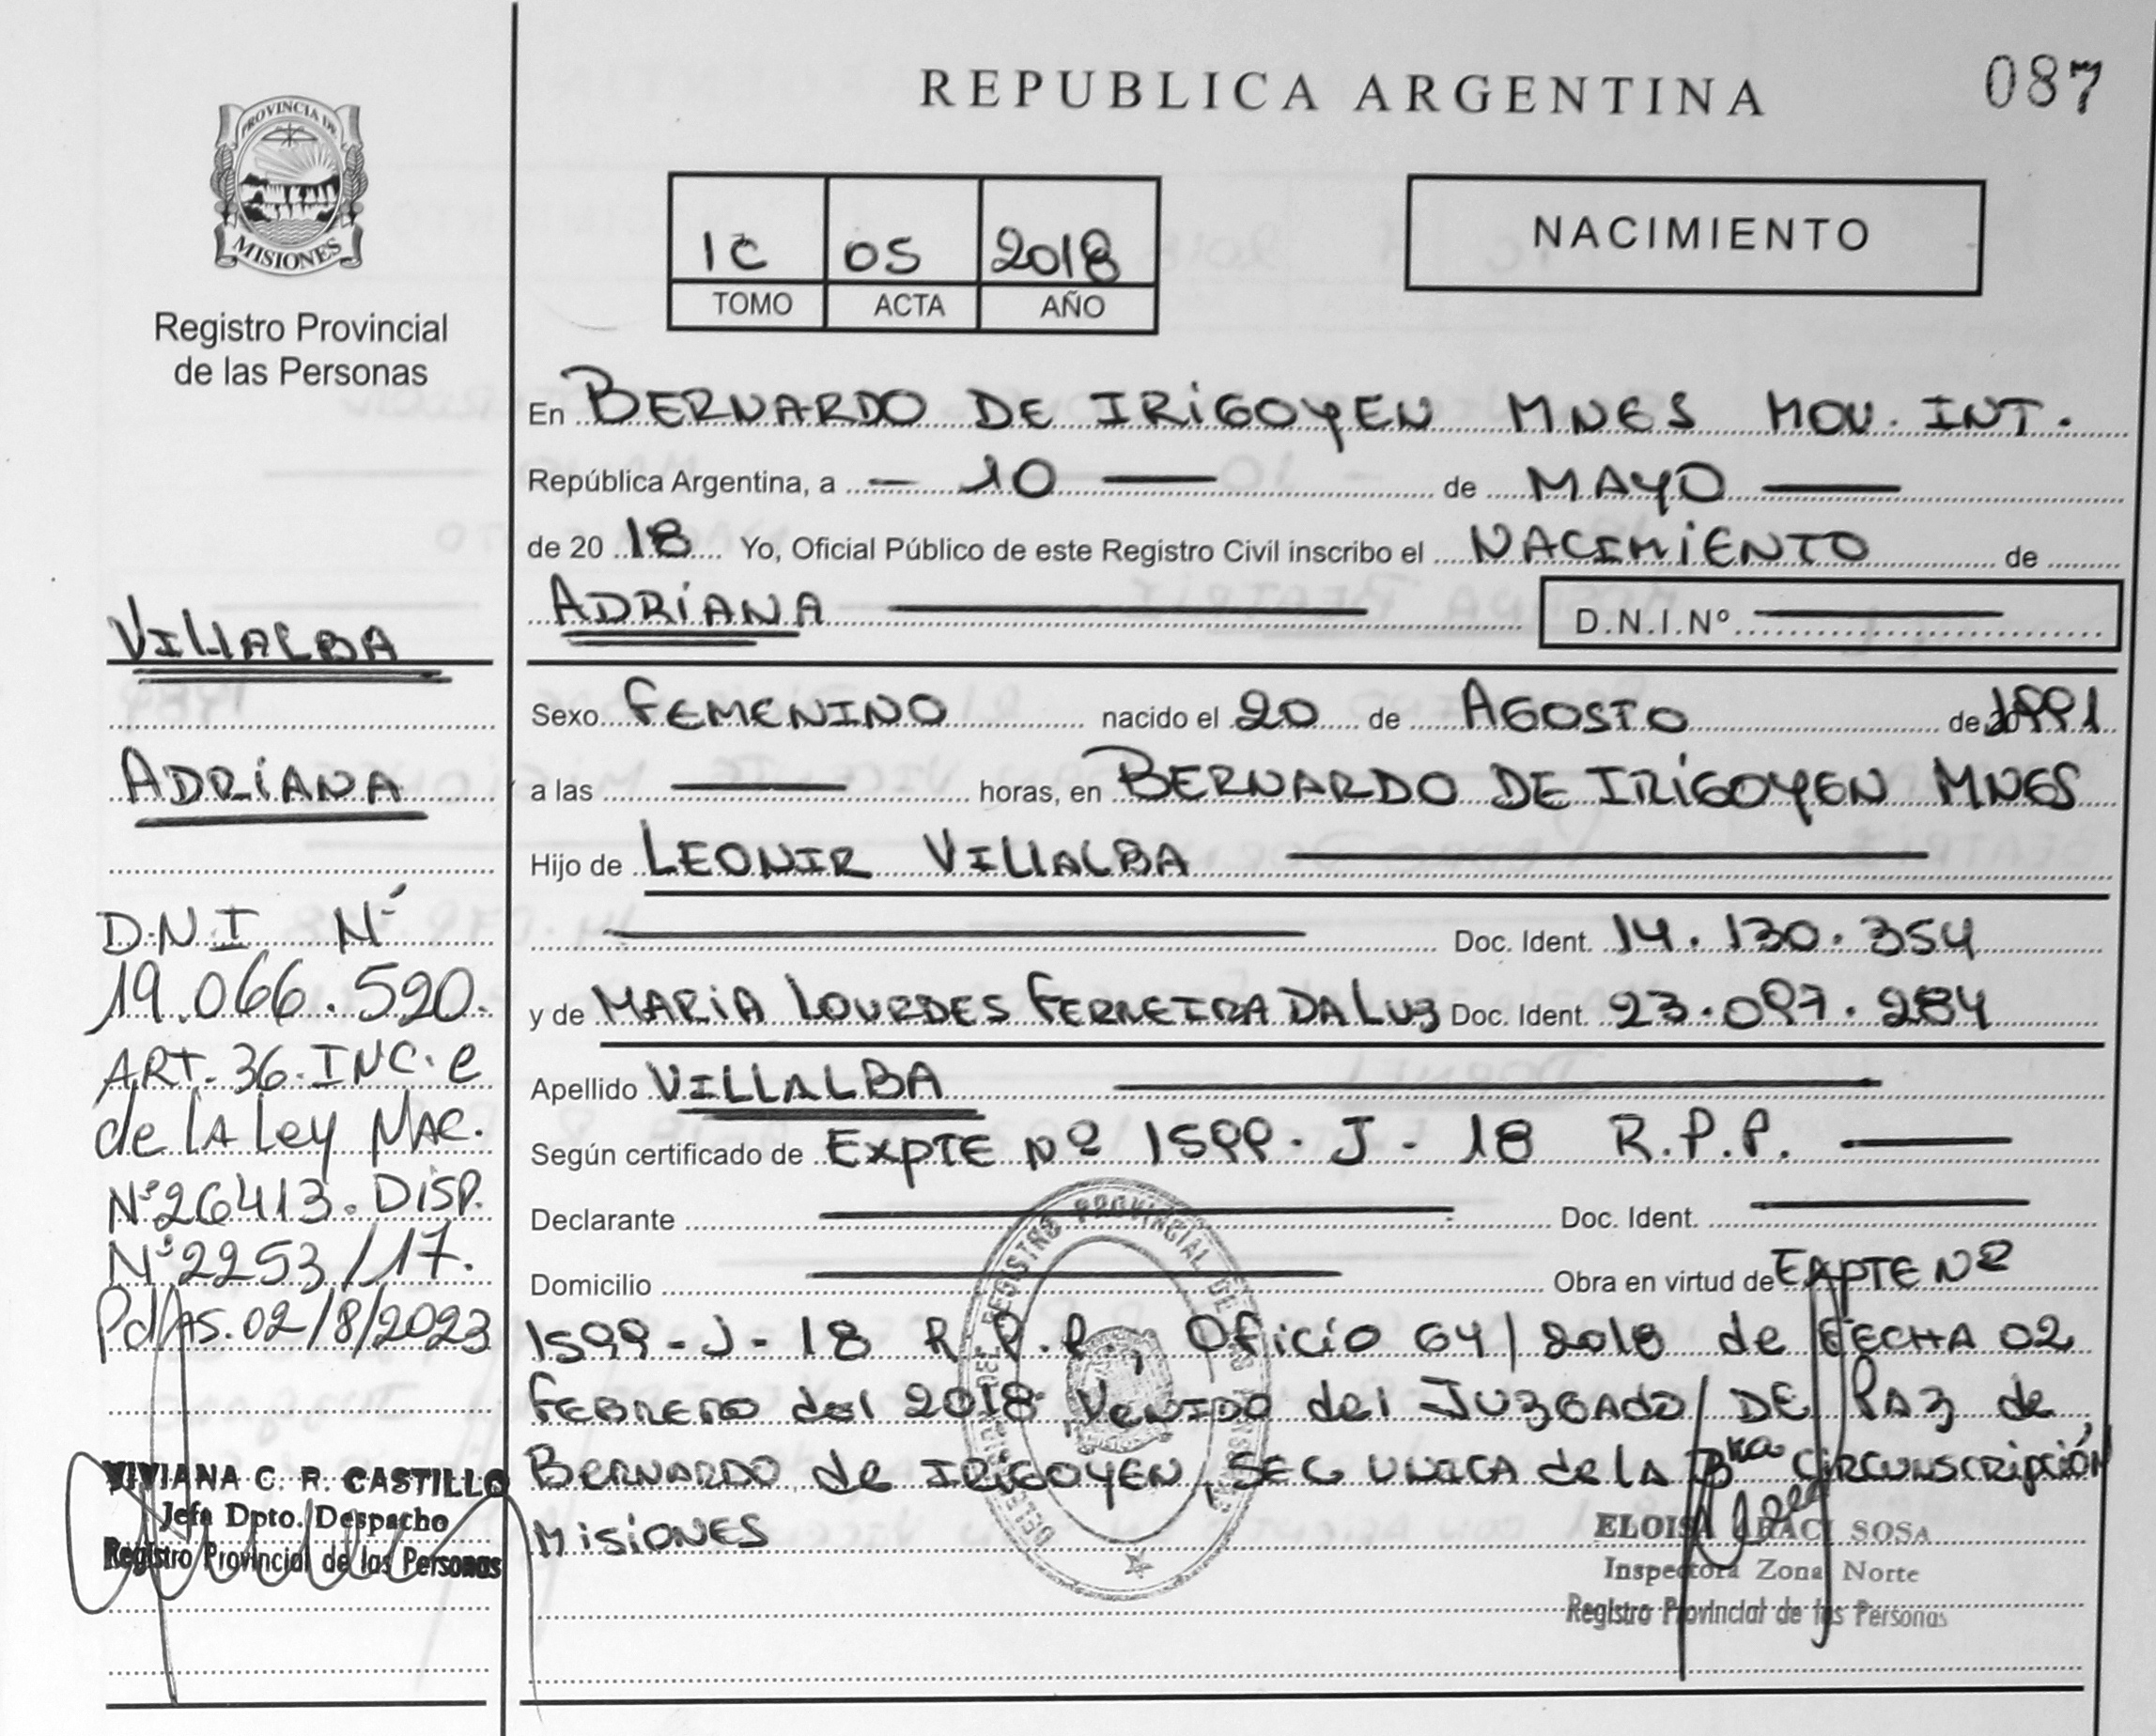 REPUBLICA ARGENTINA
087
PROVINCIA DE
MISIONES
Registro Provincial
de las Personas
1C 05 2018
TOMO ACTA AÑO
NACIMIENTO
En BERNARDO DE IRIGOYEN MNES MOV. INT.
República Argentina, a - 10 — de MAYO —
de 20 18 Yo, Oficial Público de este Registro Civil inscribo el NACIMIENTO de
ADRIANA — D.N.I.Nº —
Sexo FEMENINO nacido el 20 de AGOSTO de 1991
a las — horas, en BERNARDO DE IRIGOYEN MNES
Hijo de LEONIR VILLALBA —
— Doc. Ident. 14.130.354
y de MARIA LOURDES FERREIRA DA LUZ Doc. Ident. 23.097.284
Apellido VILLALBA —
Según certificado de EXPTE Nº 1599-J-18 R.P.P. —
Declarante — Doc. Ident. —
Domicilio — Obra en virtud de EXPTE Nº
1599-J-18 R.P.P., Oficio 64/2018 de FECHA 02
FEBRERO del 2018 VENIDO del JUZGADO DE PAZ de
BERNARDO de IRIGOYEN, SEC UNICA de LA 3ra CIRCUNSCRIPCIÓN
MISIONES
ELOISA ARACI SOSA
Inspectora Zona Norte
Registro Provincial de las Personas
VILLALBA
ADRIANA
D.N.I Nº
19.066.520.
ART. 36. INC. e
de LA Ley NAC.
Nº 26413. DISP.
Nº 2253/17.
PdAs. 02/8/2023
VIVIANA C. R. CASTILLO
Jefa Dpto. Despacho
Registro Provincial de las Personas
REGISTRO PROVINCIAL DE